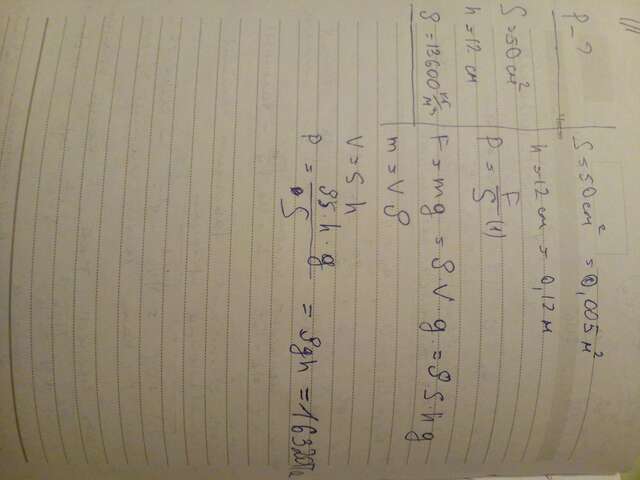 11
P - ?
S = 50 см²
h = 12 см
ρ = 13600 кг/м³
S = 50 см² = 0,005 м²
h = 12 см = 0,12 м
P = F/S (1)
F = mg = ρVg = ρShg
m = Vρ
V = S·h
P = ρS·h·g/S = ρgh = 16320 Па